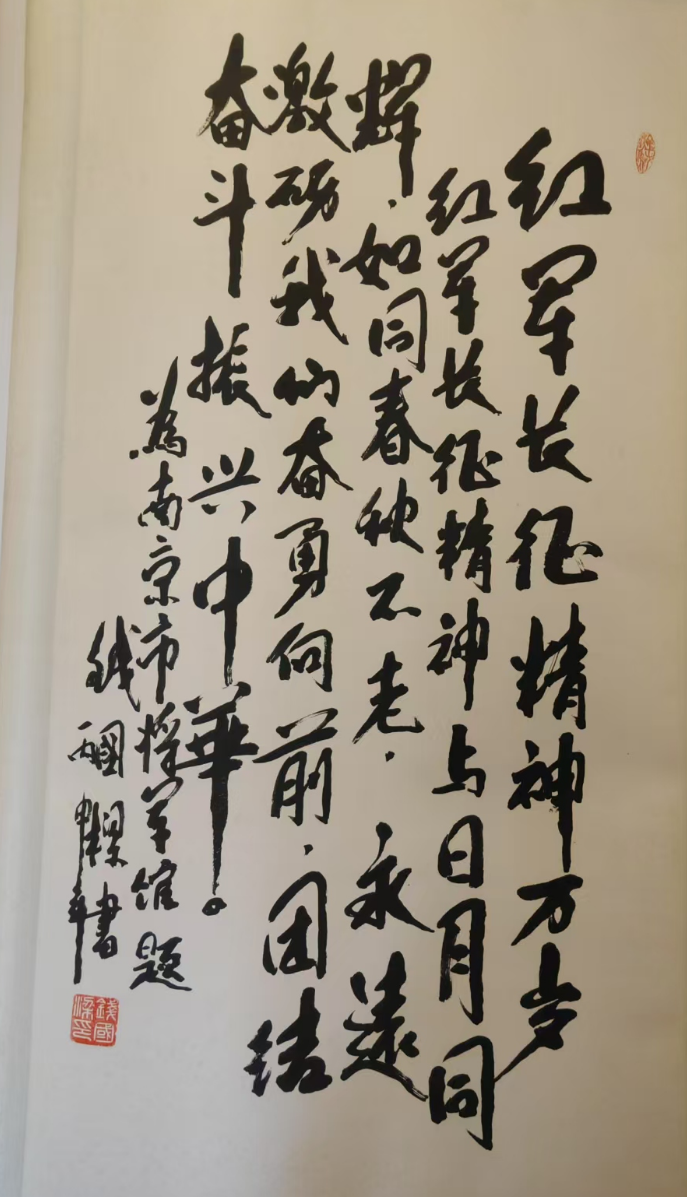 红军长征精神万岁
红军长征精神与日月同
辉.如同春秋不老.永远
激励我们奋勇向前.团结
奋斗振兴中華。
為南京市将军馆题
钱國樑書
丙申年
錢國梁印